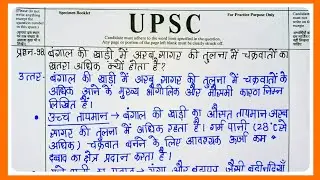 Specimen Booklet
For Practice Purpose Only
UPSC
Candidates must adhere to the word limit specified in the question.
Any page or portion of the page left blank must be clearly struck off.
प्रश्न-98. बंगाल की खाड़ी में अरब सागर की तुलना में चक्रवातों का
खतरा अधिक क्यों होता है?
उत्तर- बंगाल की खाड़ी में अरब सागर की तुलना में चक्रवातों के
अधिक आने के मुख्य भौगोलिक और मौसमी कारण निम्न
लिखित हैं।
उच्च तापमान → बंगाल की खाड़ी का औसत तापमान अरब
सागर की तुलना में अधिक रहता है। गर्म पानी (28°C से
अधिक) चक्रवात बनने के लिए आवश्यक ऊर्जा कम
दबाव का क्षेत्र प्रदान करता है।